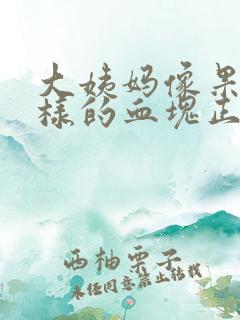 大姨妈像果
样的血块正
西柚栗子
未经同意禁止转载